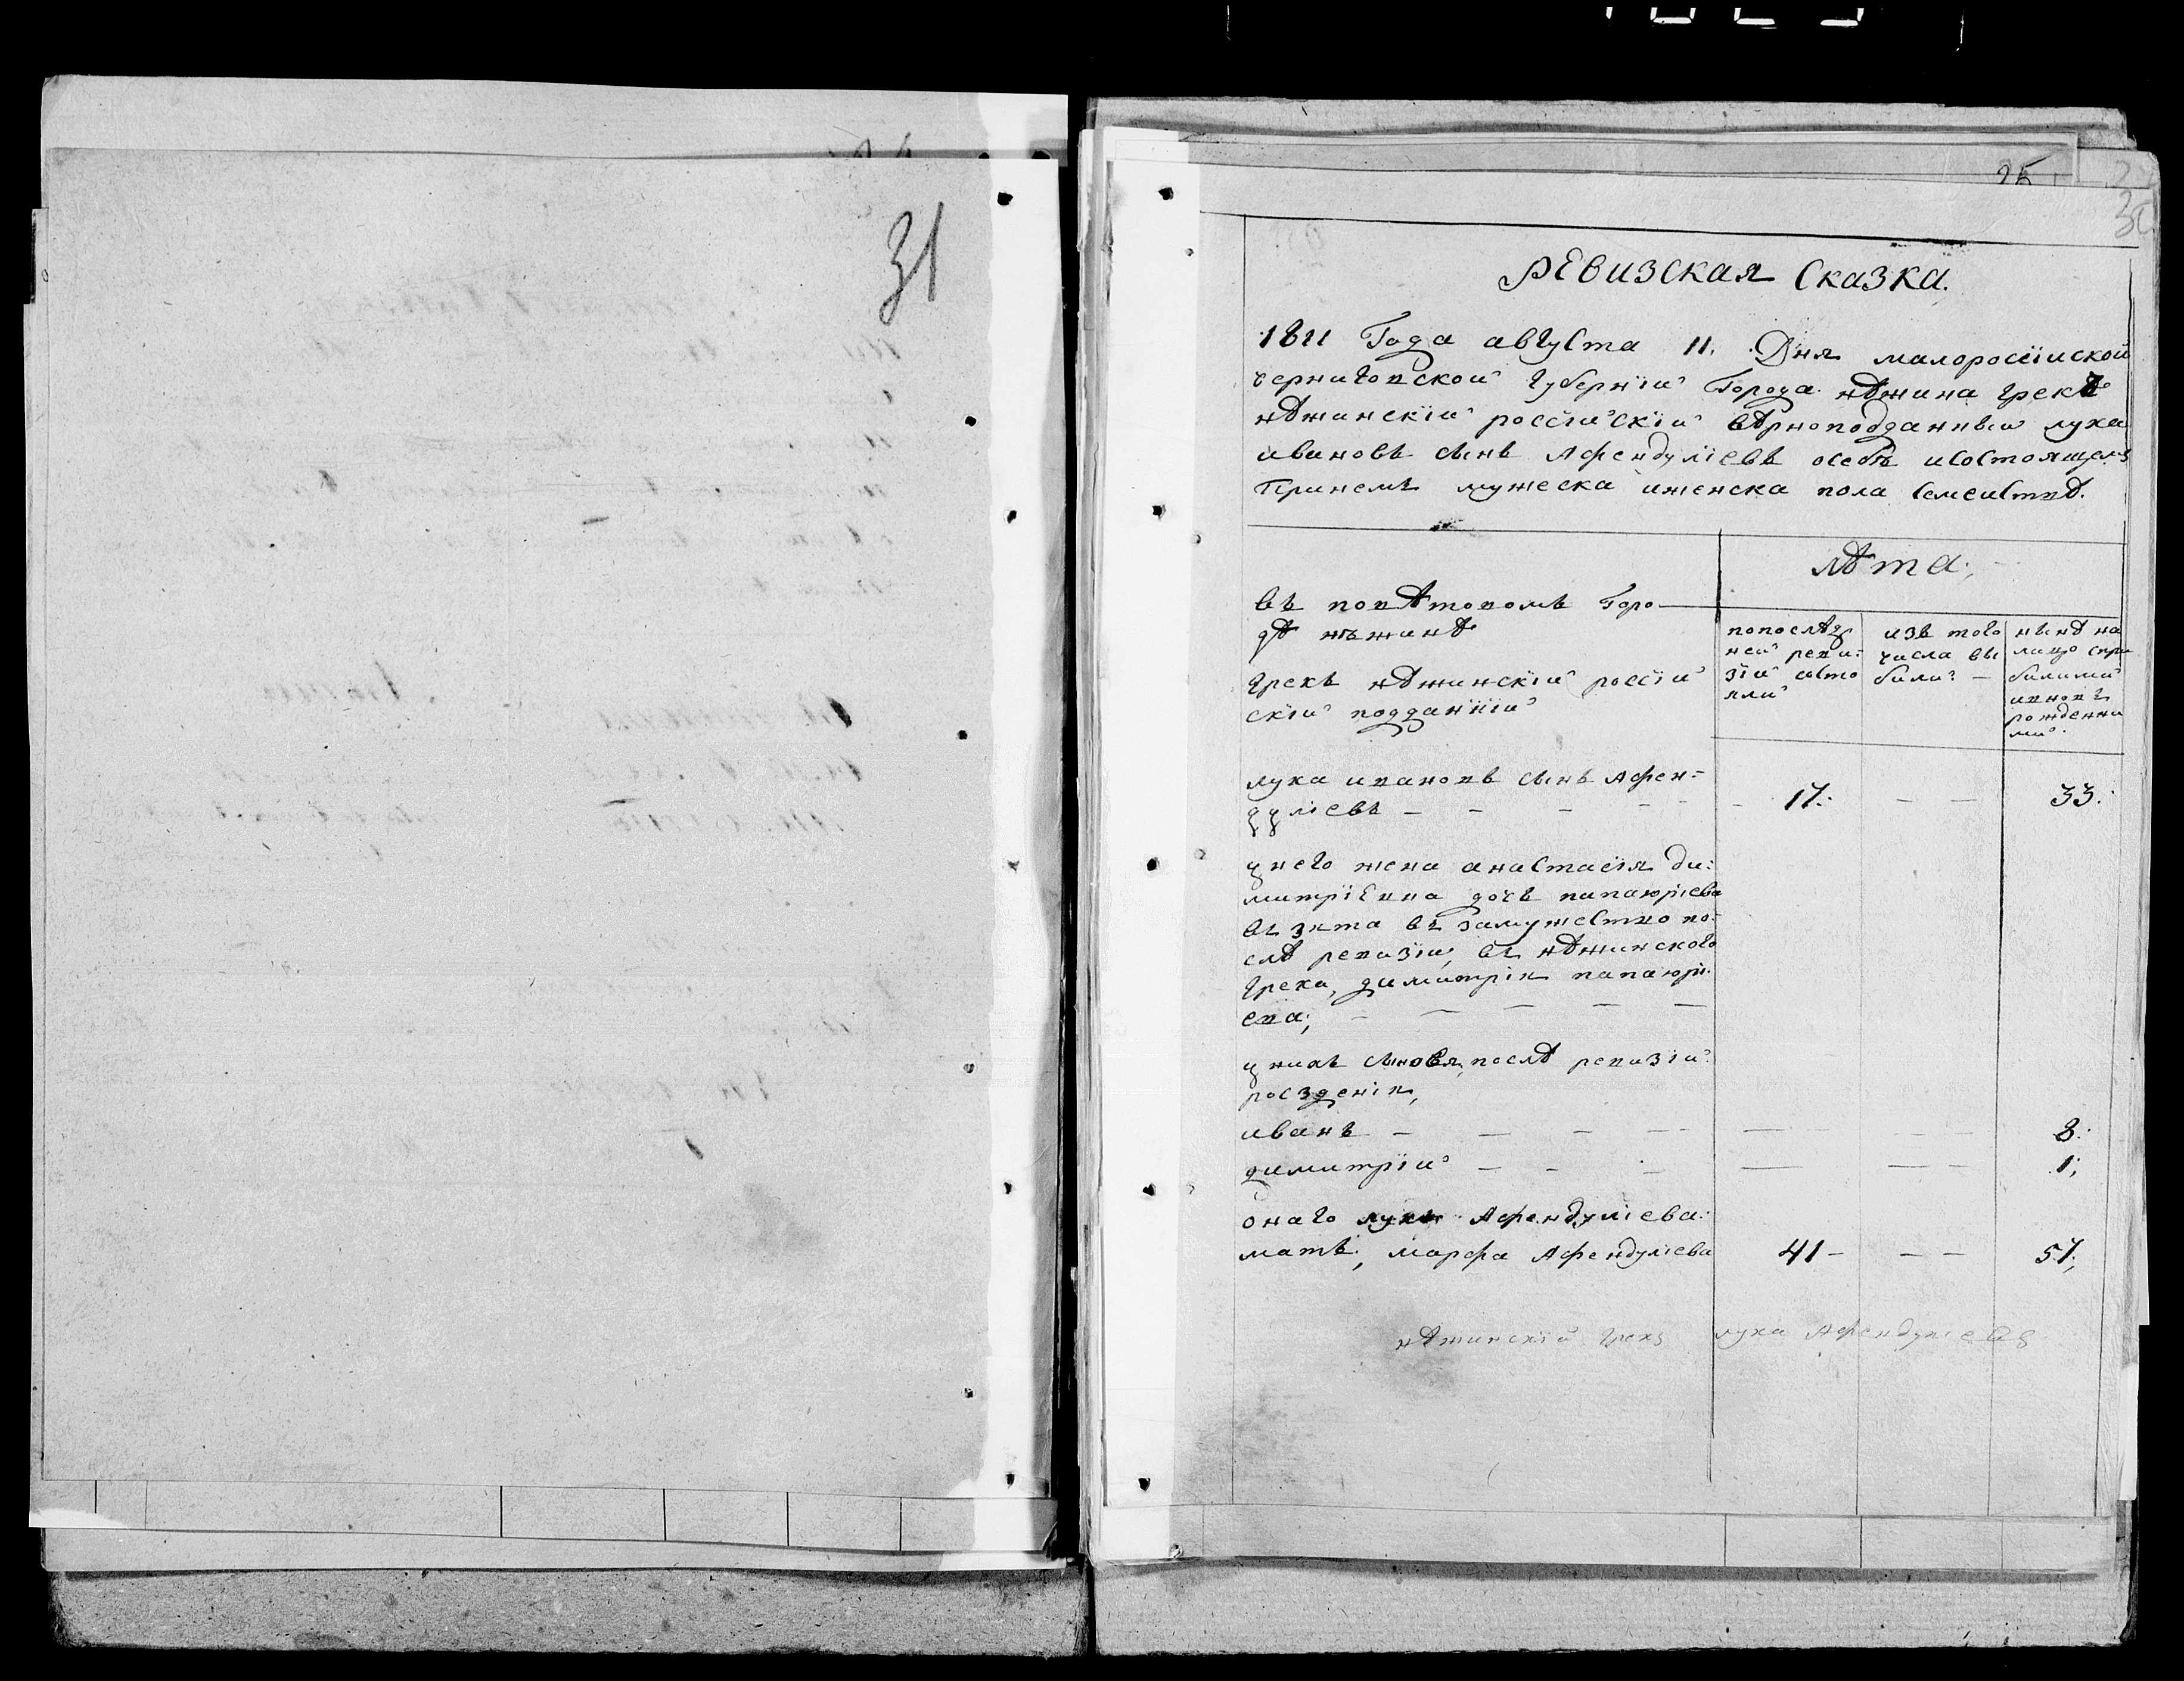 31
25
ревизская сказка.
1811 Года августа 11. Дня малоросїиской
черниговской губернїи города нѣжина грекъ
нѣжинскїй россїйскїй вѣрноподданный лука
ивановъ сынъ Афендулїевъ осебѣ исостоящемъ
Принемъ мужеска иженска пола семействѣ.
лѣта;
въ повѣтовомъ Горо
дѣ нѣжинѣ
грекъ нѣжинскїй россїй
скїй подданїй
попослѣд
ней реви:
зїи состо
яли
изъ того
числа вы
били —
нынѣ на
лицо сприбилими
ивновъ
рожденни
ми.
лука ивановъ сынъ Афен=
дулїевъ — — — — — 17: — — 33:
унего жена анастасїя ди:
митрїевна дочъ папаюрїева
въ зята въ замужество по:
слѣ ревизїи, въ нѣжинского
грека, димитрїя папаюрї
ева; — — — — —
унихъ сыновя, послѣ ревизїи
росзденїя,
иванъ — — — — — — — 8:
димитрїй — — — — — — 1;
онаго луки Афендулїева:
матъ, марфа Афендулїева 41 — — — 57;
нѣжинскїй грекъ лука Афендулїевъ